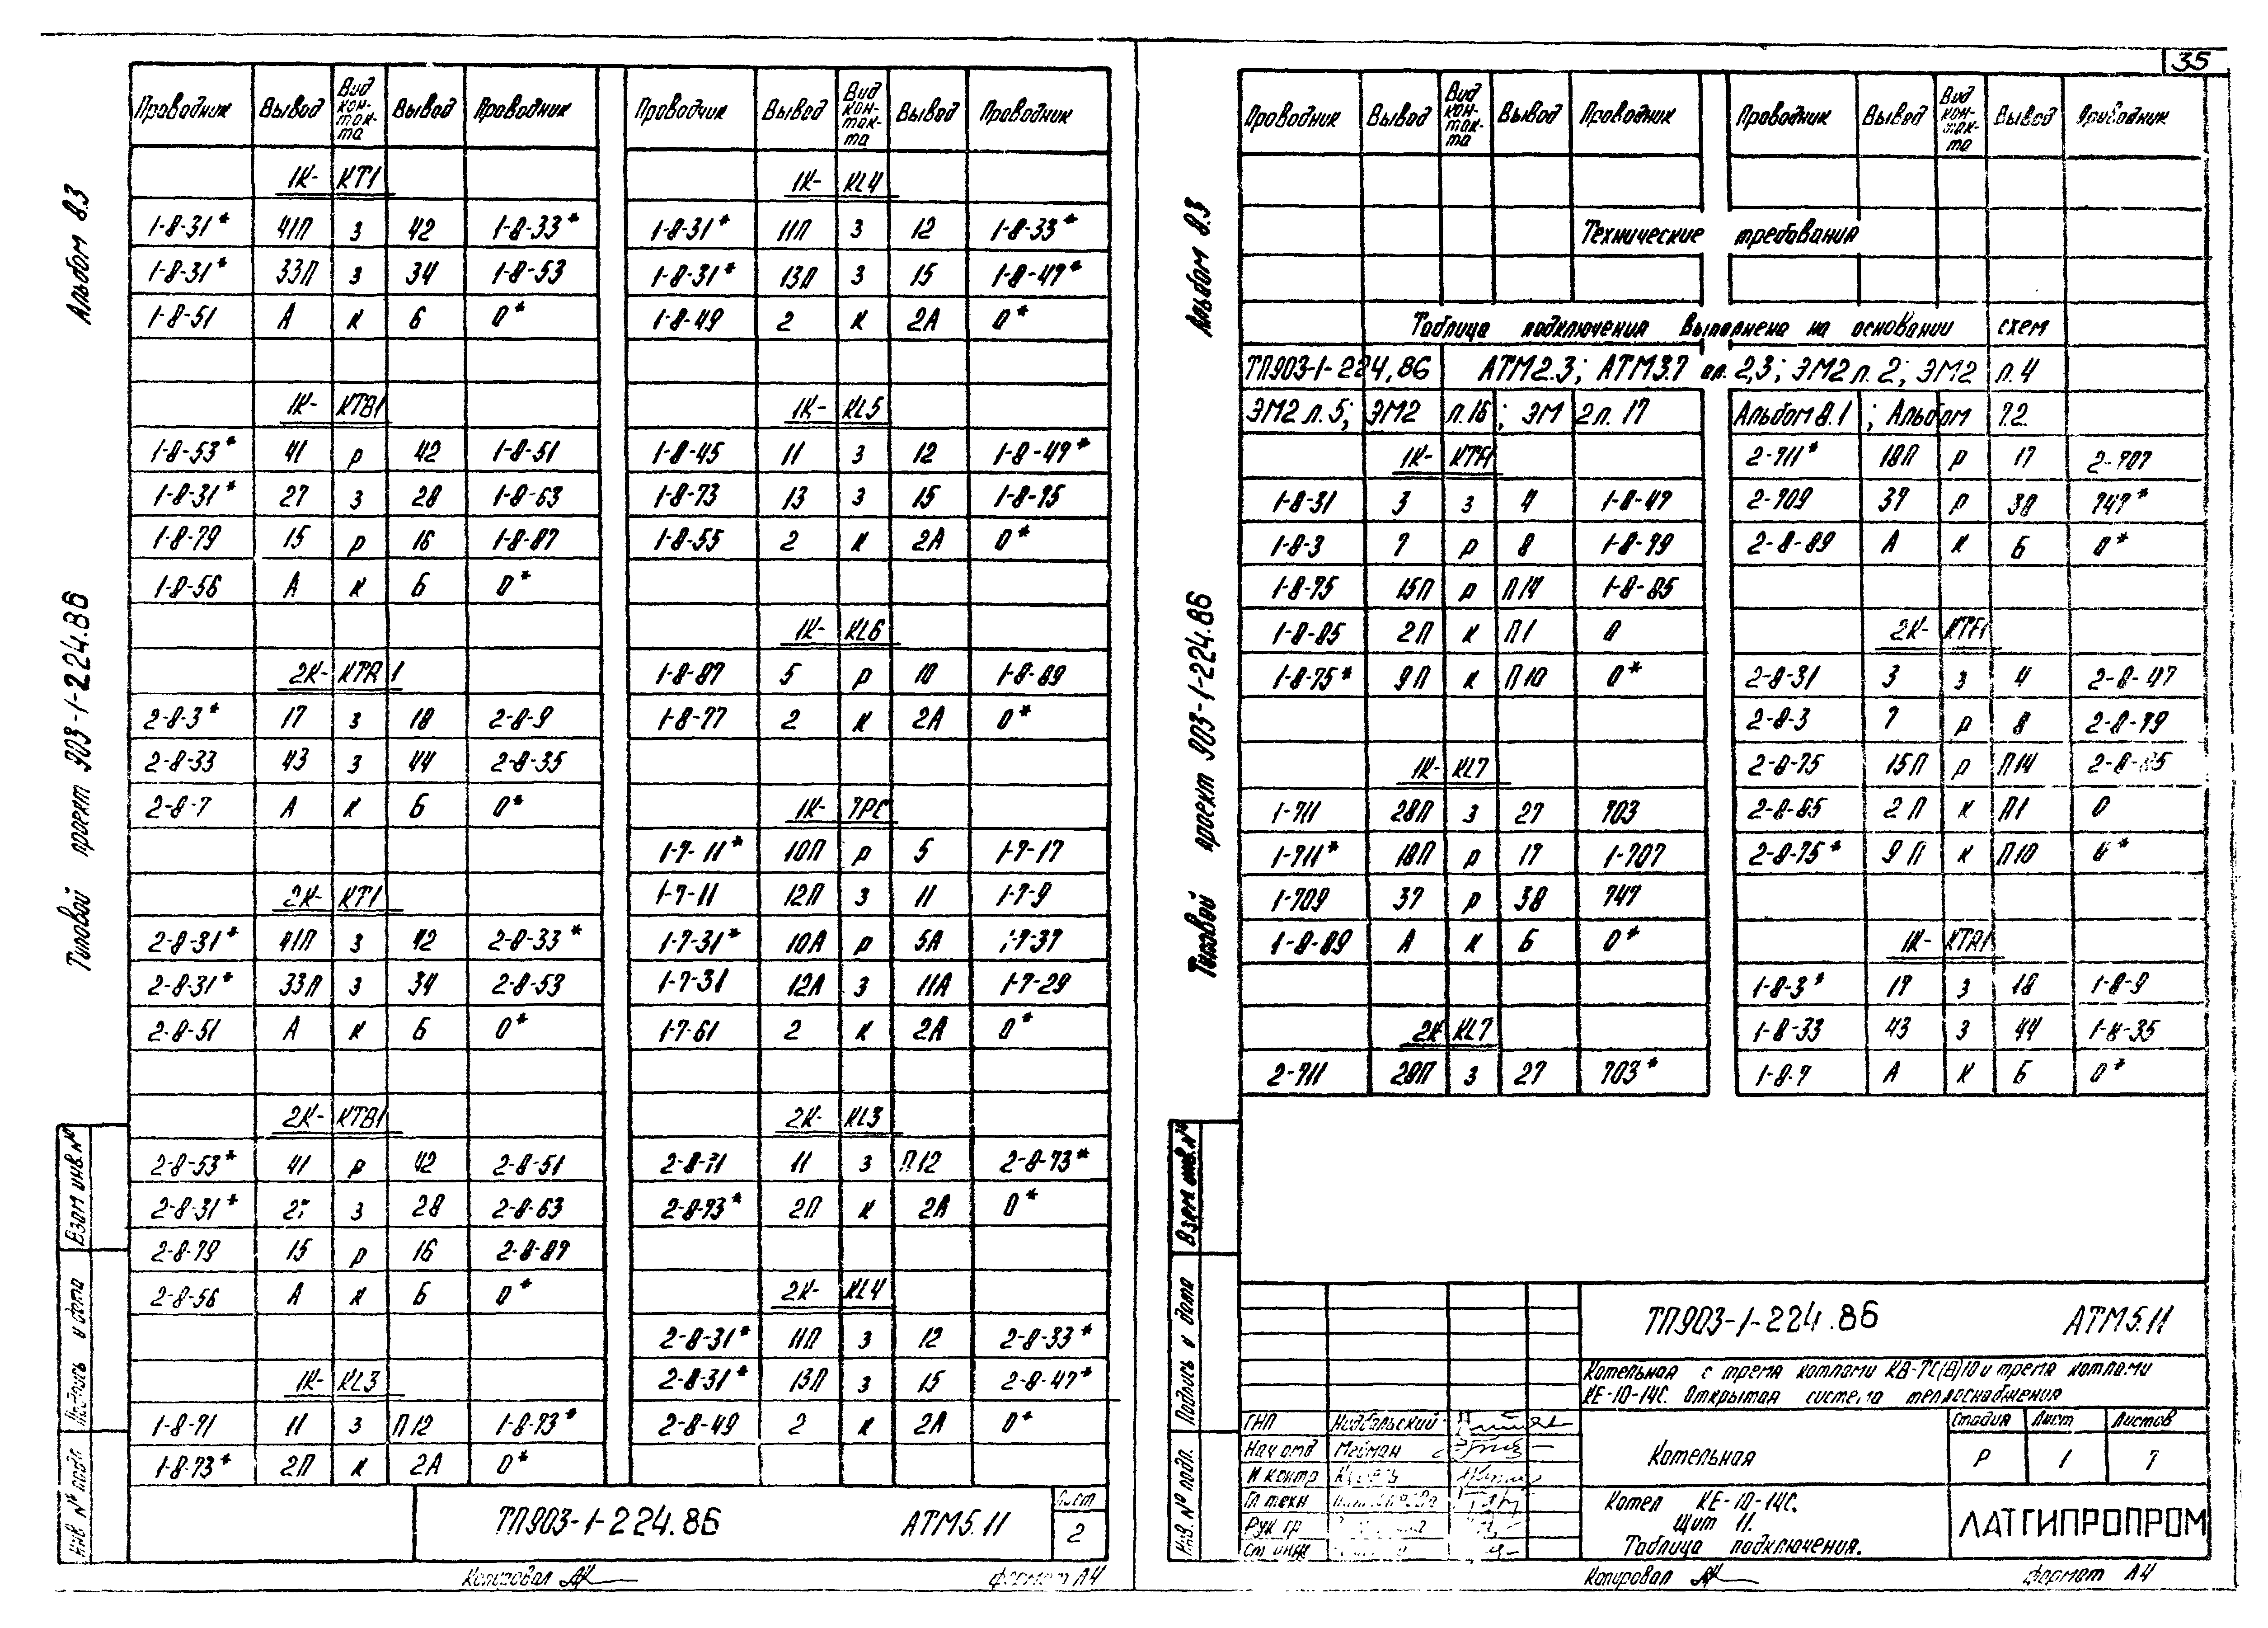 35
Альбом 8.3
Типовой проект 903-1-224.86
Взам инв.№
Подпись и дата
Инв № подл
Проводник Вывод Вид кон-так-та Вывод Проводник
1К-КТ1
1-8-31* 41П з 42 1-8-33*
1-8-31* 33П з 34 1-8-53
1-8-51 А к Б 0*
1К-КТВ1
1-8-53* 41 р 42 1-8-51
1-8-31* 27 з 28 1-8-63
1-8-79 15 р 16 1-8-87
1-8-56 А к Б 0*
2К-КТА1
2-8-3* 17 з 18 2-8-9
2-8-33 43 з 44 2-8-35
2-8-7 А к Б 0*
2К-КТ1
2-8-31* 41П з 42 2-8-33*
2-8-31* 33П з 34 2-8-53
2-8-51 А к Б 0*
2К-КТВ1
2-8-53* 41 р 42 2-8-51
2-8-31* з 28 2-8-63
2-8-79 15 р 16 2-8-87
2-8-56 А к Б 0*
1К-KL3
1-8-71 11 з П12 1-8-73*
1-8-73* 2П к 2А 0*
Проводник Вывод Вид кон-так-та Вывод Проводник
1К-KL4
1-8-31* 11П з 12 1-8-33*
1-8-31* 13П з 15 1-8-47*
1-8-49 2 к 2А 0*
1К-KL5
1-8-45 11 з 12 1-8-47*
1-8-73 13 з 15 1-8-75
1-8-55 2 к 2А 0*
1К-KL6
1-8-87 5 р 10 1-8-89
1-8-77 2 к 2А 0*
1К-7РС
1-7-11* 10П р 5 1-7-17
1-7-11 12П з 11 1-7-9
1-7-31* 10А р 5А 1-7-37
1-7-31 12А з 11А 1-7-29
1-7-61 2 к 2А 0*
2К-KL3
2-8-71 11 з П12 2-8-73*
2-8-73* 2П к 2А 0*
2К-KL4
2-8-31* 11П з 12 2-8-33*
2-8-31* 13П з 15 2-8-47*
2-8-49 2 к 2А 0*
ТП903-1-224.86 АТМ5.11
Лист
2
Копировал
Формат А4
Альбом 8.3
Типовой проект 903-1-224.86
Взам. инв.№
Подпись и дата
Инв. № подл.
Проводник Вывод Вид кон-так-та Вывод Проводник Проводник Вывод Вид кон-так-та Вывод Проводник
Технические требования
Таблица подключения выполнена на основании схем
ТП903-1-224.86 АТМ2.3; АТМ3.7 лл. 2,3; ЭМ2 л. 2; ЭМ2 л.4
ЭМ2 л.5; ЭМ2 л.16; ЭМ 2л. 17 Альбом 8.1; Альбом 7.2.
1К-KTF1
1-8-31 3 з 4 1-8-47
1-8-3 7 р 8 1-8-79
1-8-75 15П р П14 1-8-85
1-8-85 2П к П1 0
1-8-75* 9П к П10 0*
1К-KL7
1-711 28П з 27 703
1-711* 18П р 17 1-707
1-709 37 р 38 747
1-8-89 А к Б 0*
2К KL7
2-711 28П з 27 703*
2-711* 18П р 17 2-707
2-709 37 р 38 747*
2-8-89 А к Б 0*
2К-KTF1
2-8-31 3 з 4 2-8-47
2-8-3 7 р 8 2-8-79
2-8-75 15П р П14 2-8-85
2-8-85 2П к П1 0
2-8-75* 9П к П10 0*
1К-КТА1
1-8-3* 17 з 18 1-8-9
1-8-33 43 з 44 1-8-35
1-8-7 А к Б 0*
ТП903-1-224.86 АТМ5.11
Котельная с тремя котлами КВ-ТС(В)10 и тремя котлами
КЕ-10-14С. Открытая система теплоснабжения
ГИП
Нач отд Мейман
Н контр
Гл техн
Рук гр
Ст инж
Котельная
Стадия Лист Листов
Р 1 7
Котел КЕ-10-14С.
Щит 11.
Таблица подключения.
ЛАТГИПРОПРОМ
Копировал
Формат А4